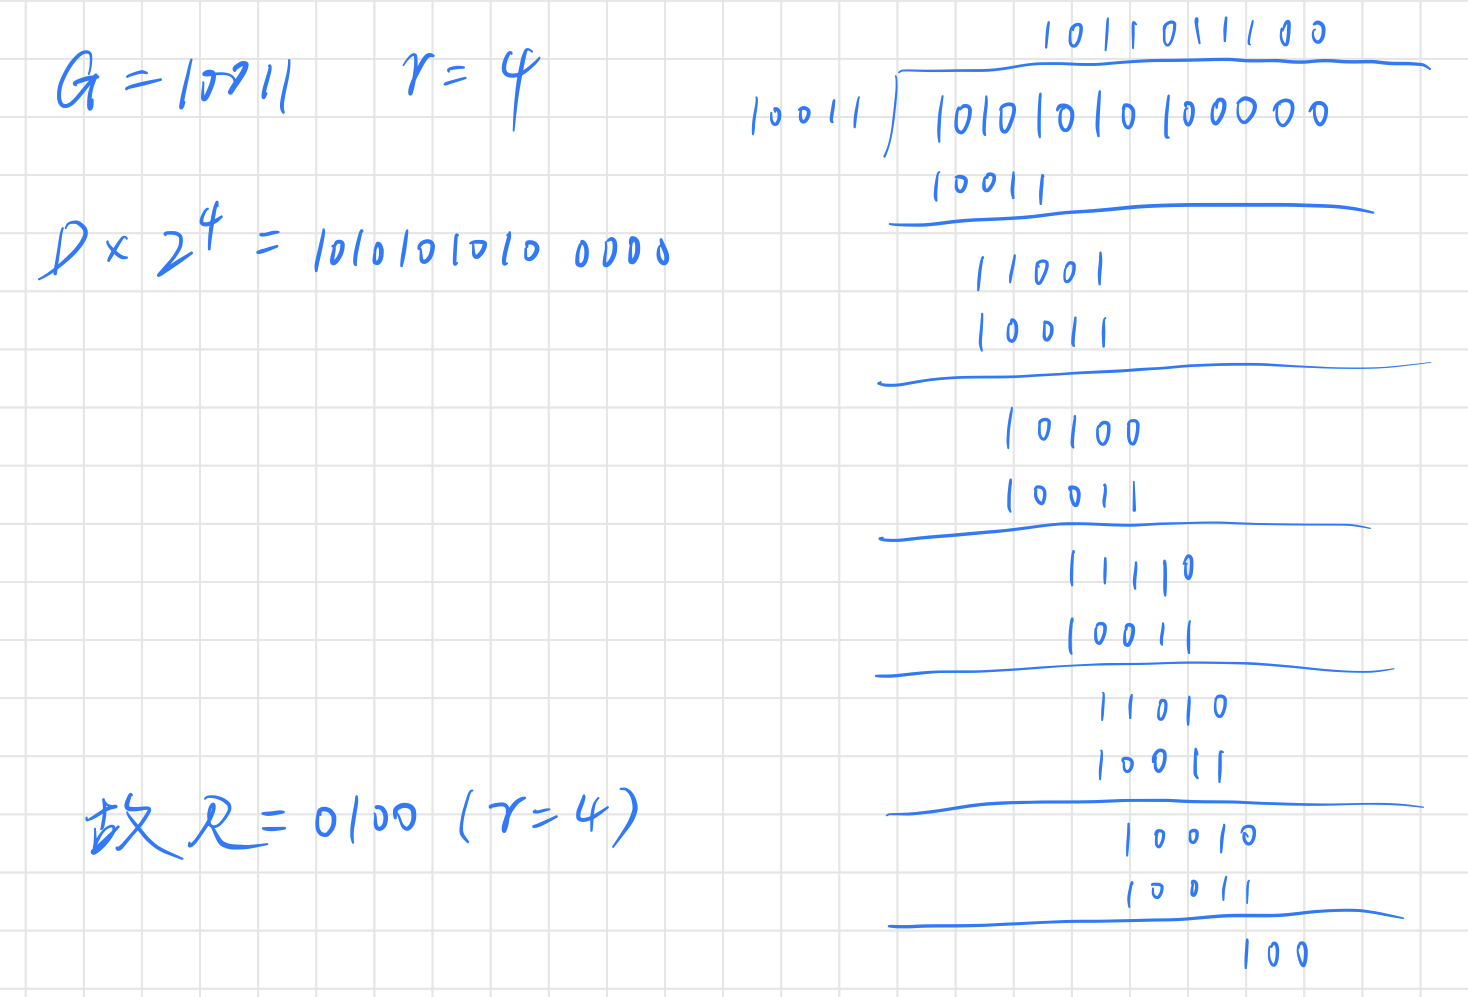 G = 10011 r = 4
D × 2⁴ = 1010101010 0000
故 R = 0100 (r = 4)
1011011100
10011 ) 10101010100000
10011
11001
10011
10100
10011
11110
10011
11010
10011
10010
10011
100